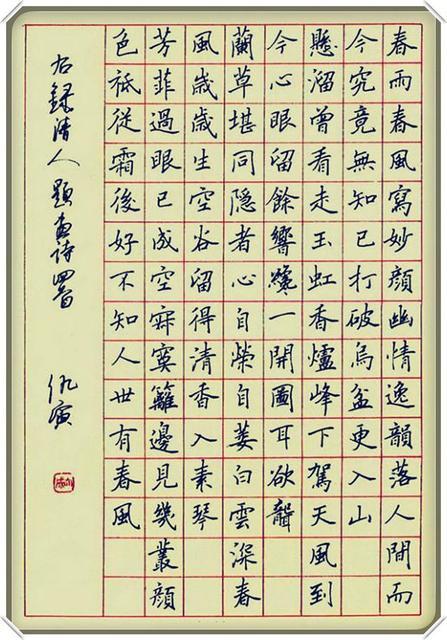 春雨春風寫妙顏幽情逸韻落人間而
今究竟無知己打破烏盆更入山
懸溜曾看走玉虹香爐峰下駕天風到
今心眼留餘響纔一開圖耳欲聾
蘭草堪同隱者心自榮自萎白雲深春
風歲歲生空谷留得清香入素琴
芳菲過眼已成空寂寞籬邊見幾叢顏
色祇從霜後好不知人世有春風
右錄清人題畫詩四首 仇寅